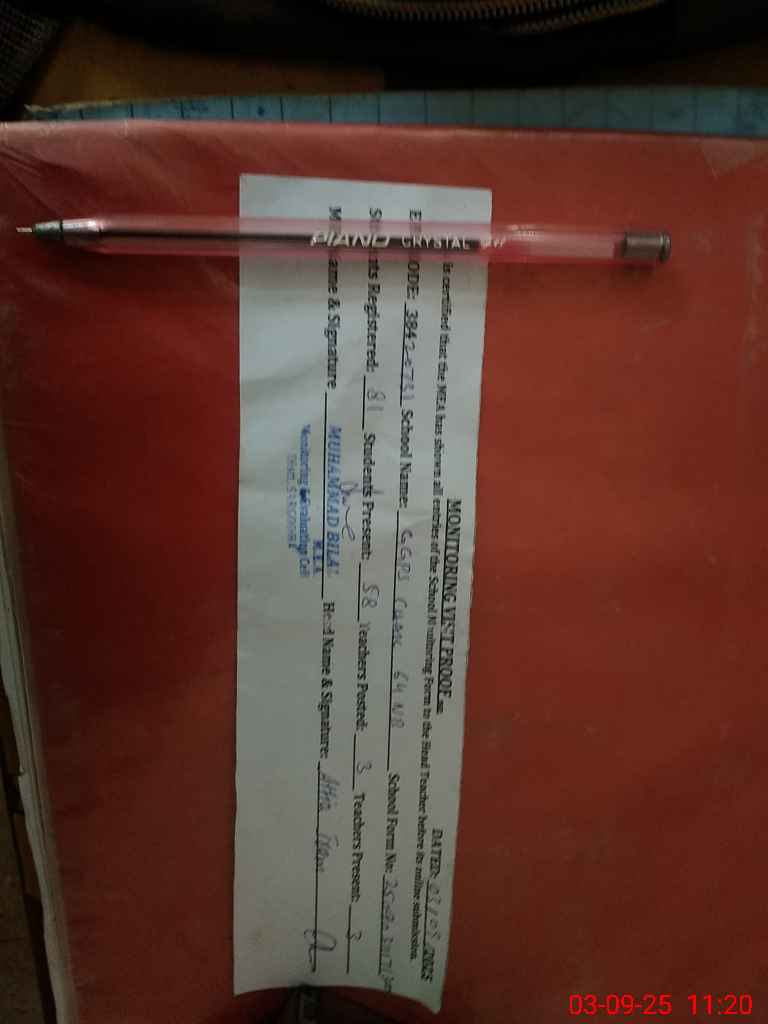 MONITORING VISIT PROOF
DATED: 03/09/2025
is certified that the MEA has shown all entries of the School Monitoring Form to the Head Teacher before its online submission.
ODE: 38420731 School Name: GGPS Chak 64 NB School Form No:
Registered: 81 Students Present: 58 Teachers Posted: 3 Teachers Present: 3
Name & Signature MUHAMMAD BILAL Head Name & Signature: Attia
M.E.A
Monitoring & Evaluation Cell
Distt. SARGODHA
PIANO CRYSTAL
03-09-25 11:20